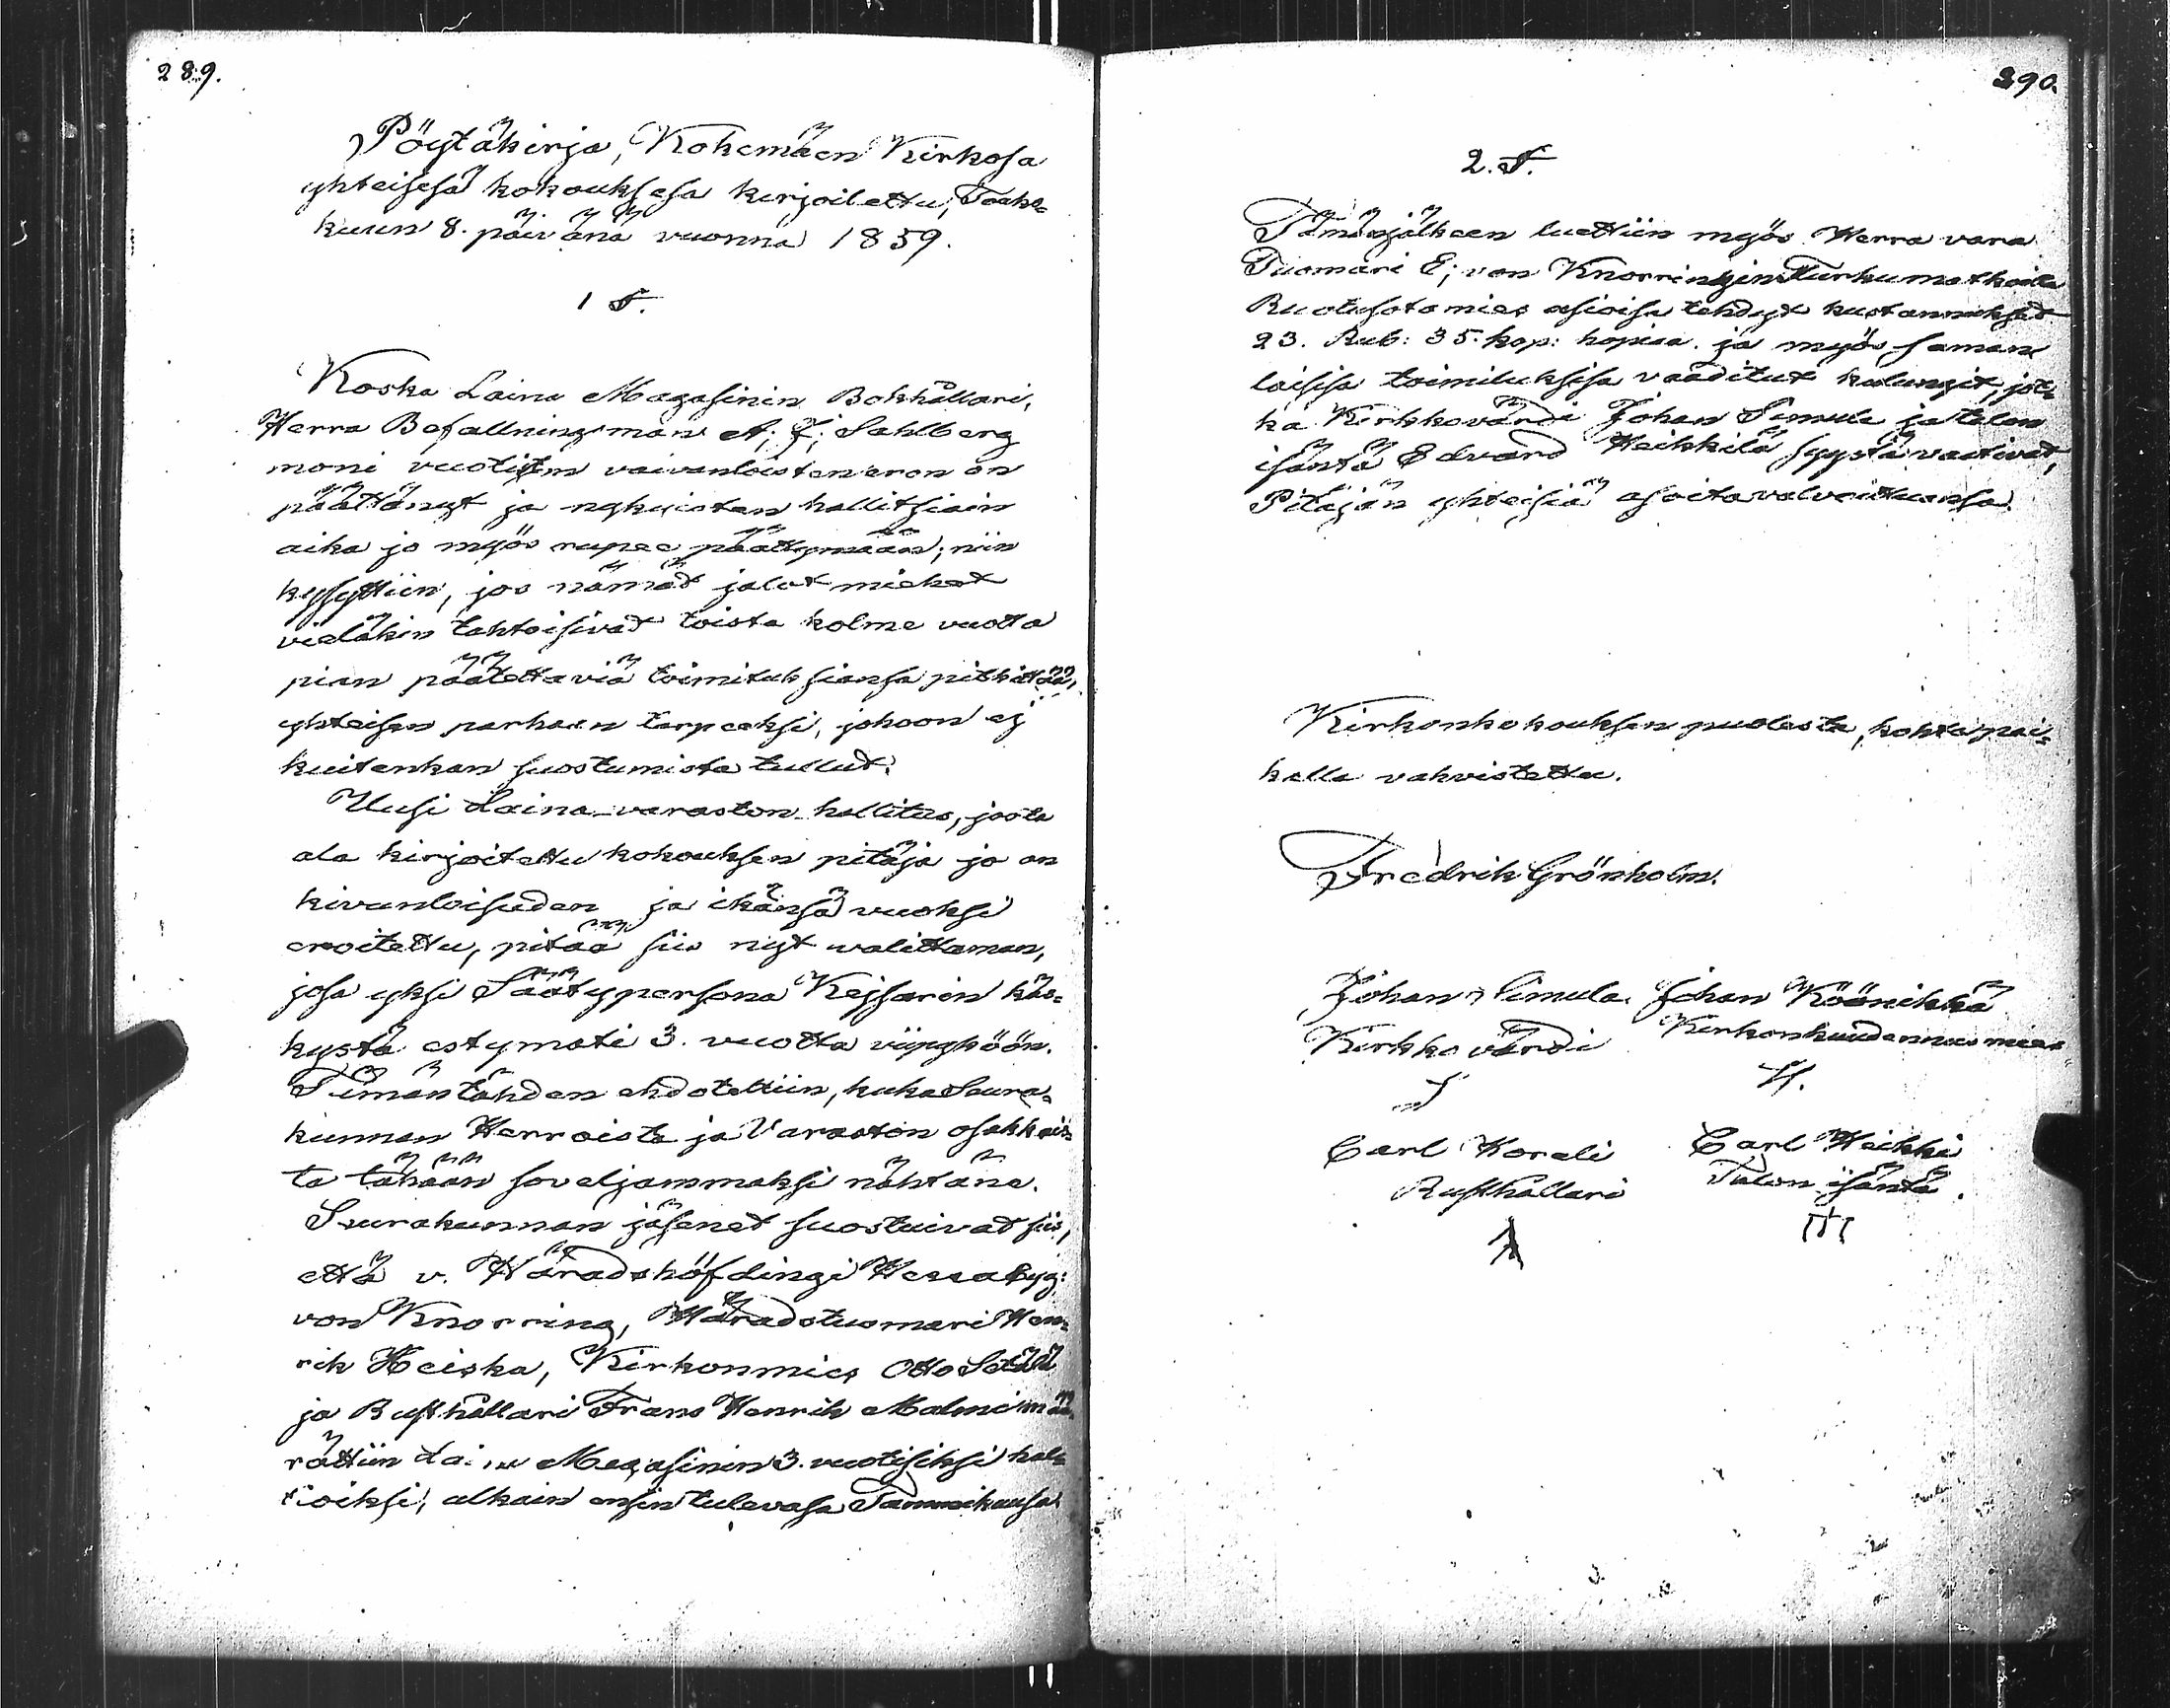 289.
Pöytäkirja, Kokemäen Kirkosa
yhteisesä kokouksesa kirjoitettu, Touko-
kuun 8. päivänä vuonna 1859.
1 §.
Koska Laina Magasinin Bokhållari,
Herra Befallningsman A; F; Sahlberg
moni vuotisten vaivanloisten eron on
päättänyt ja nykuisten hallitsiain
aika jo myös rupee päättymään; niin
kysyttiin, jos nämät jalot miehet
vieläkin tahtoisivat toista kolme vuotta
pian päätettäviä toimituksiansa pitkittää,
yhteisen parhaan tarpeeksi, johoon ej
kuitenkan suostumista tullut.
Uusi Laina-varaston hallitus, josta
ala kirjoitettu kokouksen pitäjä jo on
kivunloisuden ja ikänsä vuoksi
eroitettu, pitää siis nyt valittaman,
josa yksi Säätypersona Kejsarin käs-
kystä estymäti 3. vuotta viipyköön.
Tämäntähden ehdoteltiin, kuka Seura-
kunnan Herroista ja Varaston osakkais-
ta tähään soveljammaksi nähtäne.
Seurakunnan jäsenet suostuivat siis,
että v. Häradshöfdingi Herra
von Knorring, Häradstuomari Hen-
rik Heiska, Kirkonmies Otto Setälä
ja Rusthållari Frans Henrik Malmi mää-
rättiin Laina Magasinin 3. vuotisiksi hal-
tioiksi, alkain ensin tulevasa Tammikuusa.
290.
2. §.
Tämänjälkeen luettiin myös Herra vara
Tuomari E; von Knorringin Turku matkoilla
Ruotusotamies asioisa tehdyt kustannukset
23. Rub: 35. kop: hopiaa. ja myös saman
laisisa toimituksisa vaaditut kulungit, jot-
ka Kirkkovärdi Johan Simula ja talon
isäntä Edvard Heikkilä syystä vaativat,
Pitäjän yhteisiä asioita valvoituansa.
Kirkonkokouksen puolesta, kohta pai-
kalla vahvistettu.
Fredrik Grönholm.
Johan Simula. Johan Köönikkä
Kirkkovärdi Kirkonkuudennusmies
Carl Horeli Carl Heikki
Rusthållari Talon isäntä.